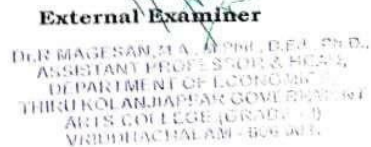 External Examiner
Dr.R MAGESAN, M.A., M.Phil., B.Ed., Ph.D.,
ASSISTANT PROFESSOR & HEAD,
DEPARTMENT OF ECONOMICS,
THIRU KOLANJIAPPAR GOVERNMENT
ARTS COLLEGE (GRADE - I)
VRIDDHACHALAM - 606 001.